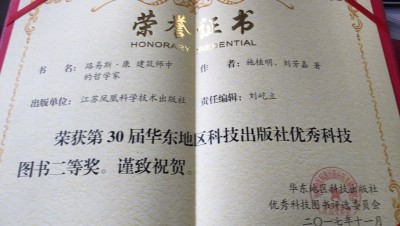 荣誉证书
HONORARY CREDENTIAL
书　名：路易斯·康 建筑师中
的哲学家
作　者：施植明、刘芳嘉 著
出版单位：江苏凤凰科学技术出版社
责任编辑：刘屹立
荣获第30届华东地区科技出版社优秀科技
图书二等奖。谨致祝贺。
华东地区科技出版社
优秀科技图书评选委员会
二〇一七年十一月